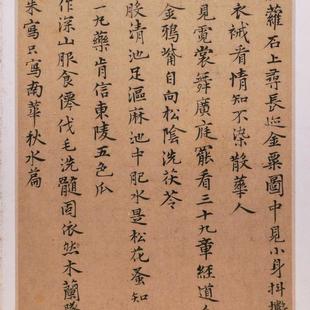 蘿石上尋長金粟圖中見小身抖擻
衣裓看情知不染散華人
見霓裳舞廣庭罷看三十九章經道
金鴉觜自向松陰洗茯苓
清池足漚麻池中肥水是松花蚤知
一丸藥肯信東陵五色瓜
作深山服食僊伐毛洗髓固依然木蘭
朱寫只寫南華秋水篇